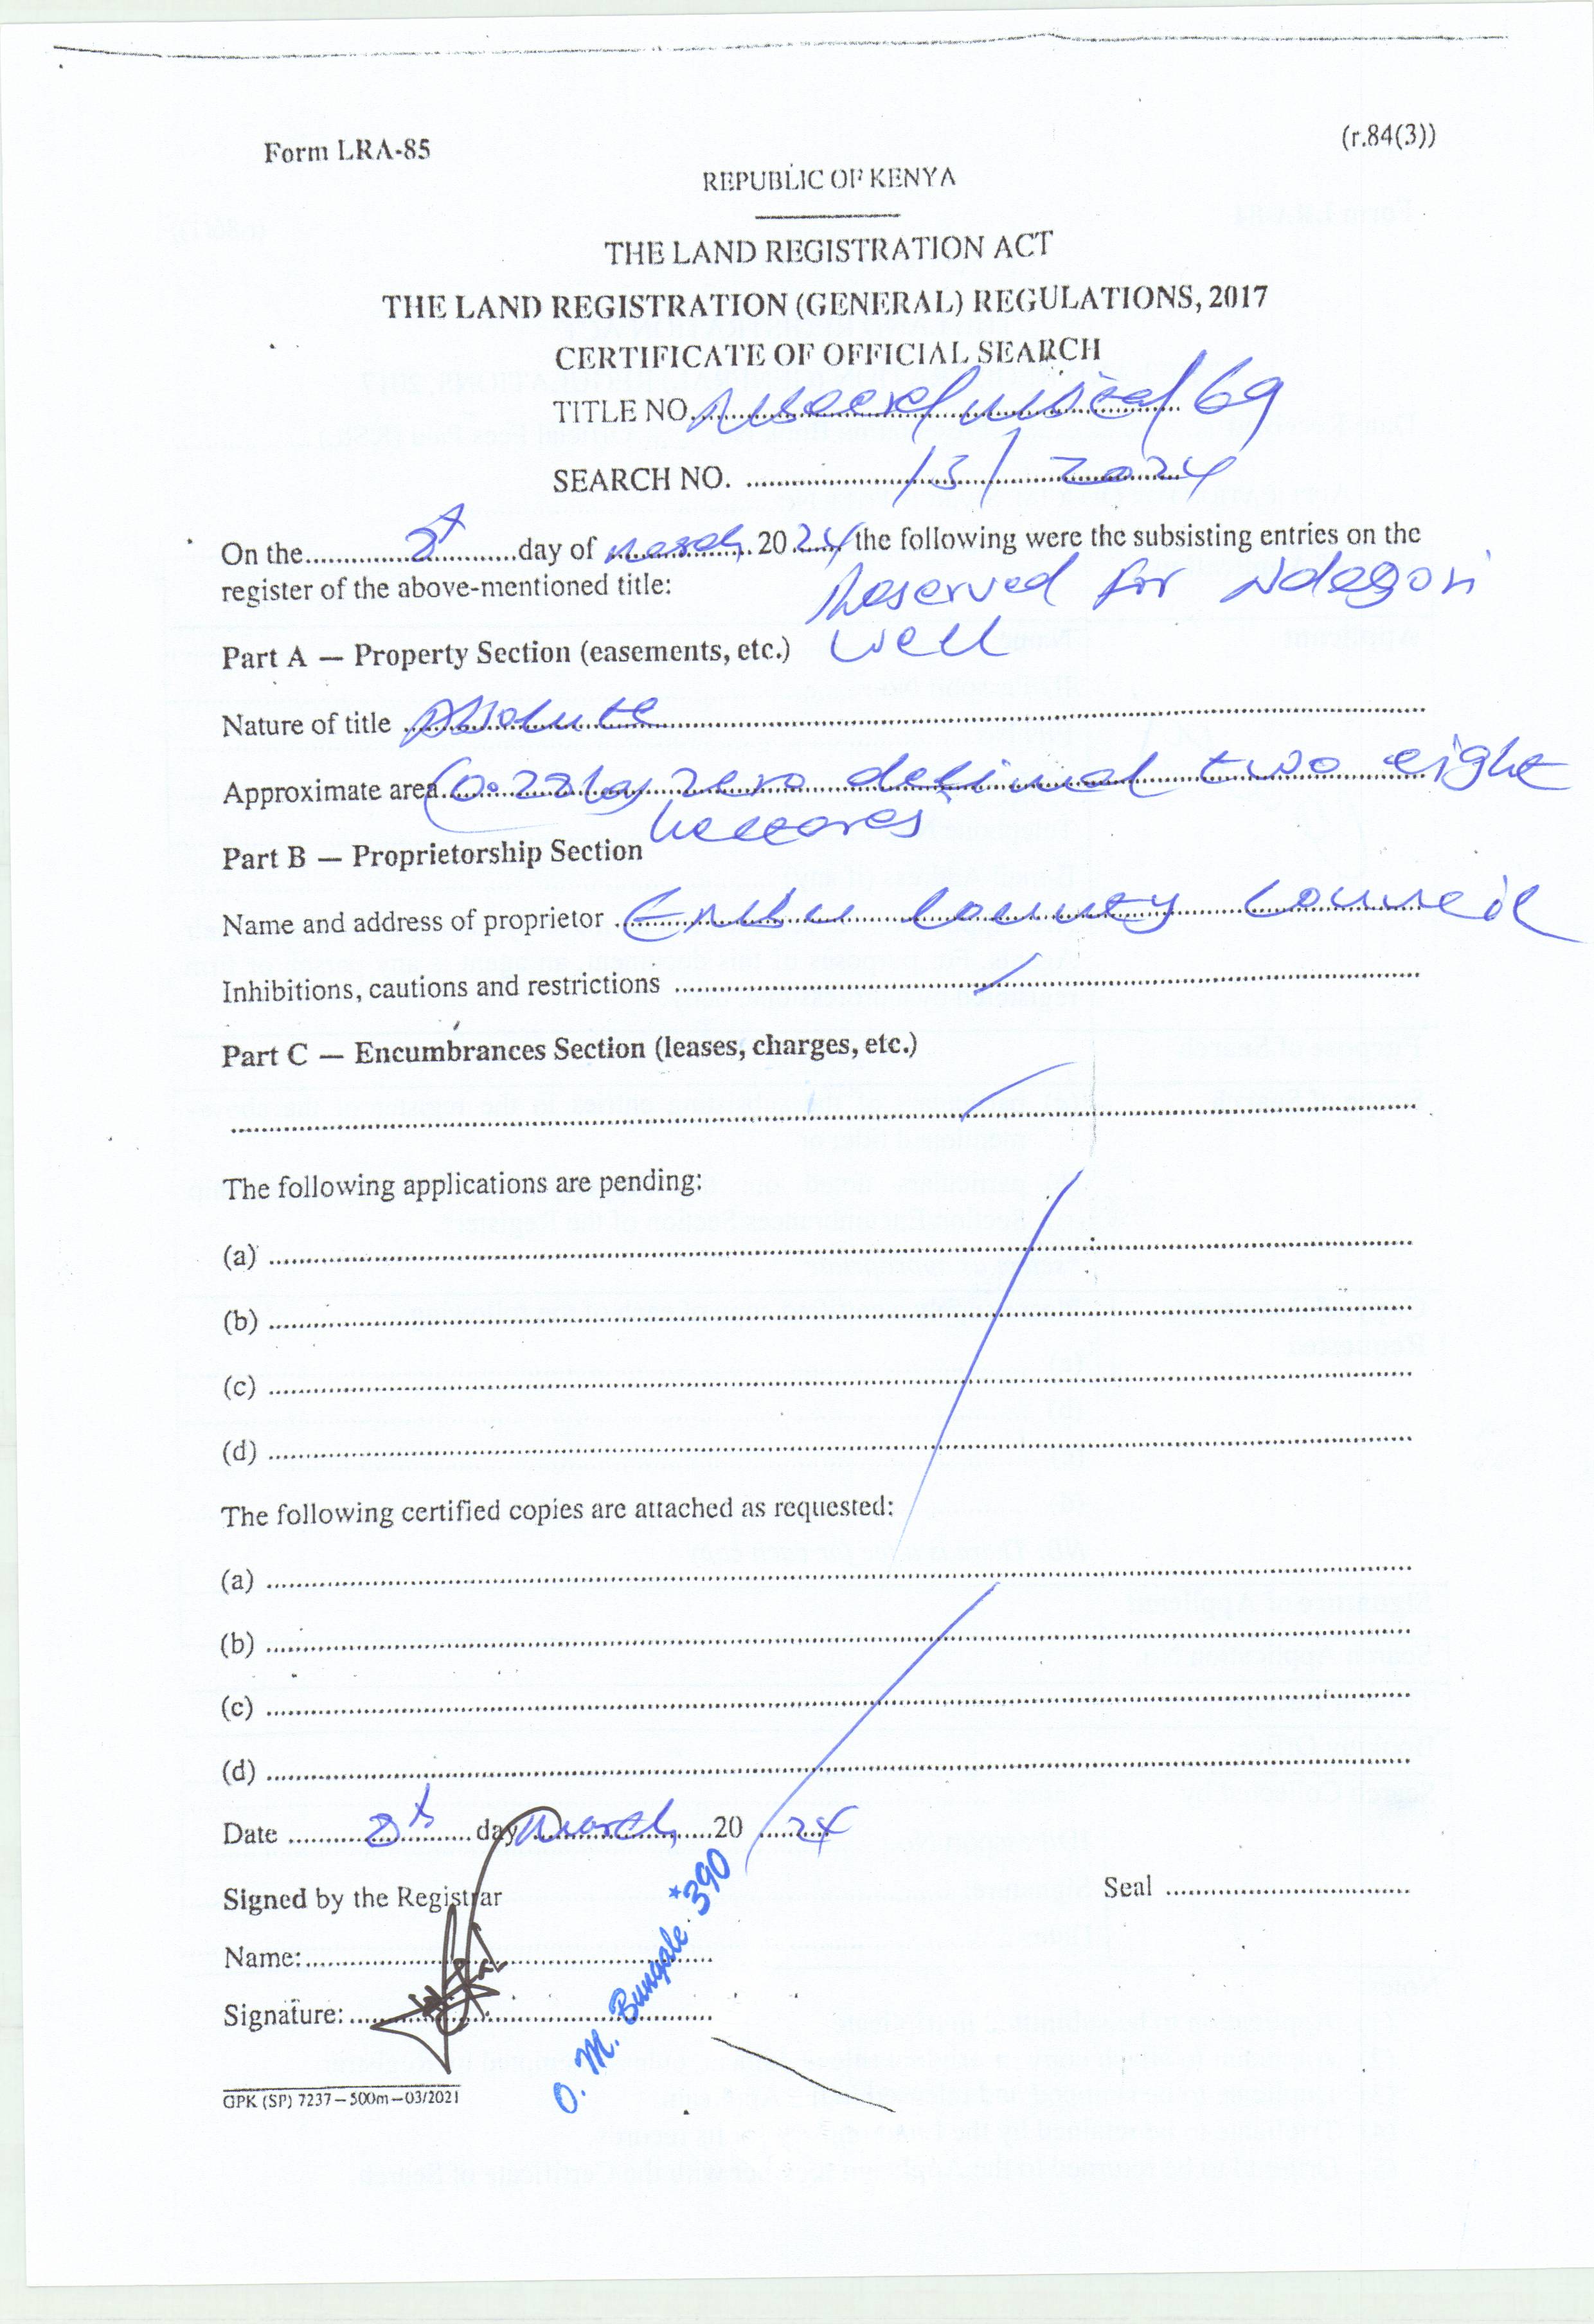 Form LRA-85
(r.84(3))
REPUBLIC OF KENYA
THE LAND REGISTRATION ACT
THE LAND REGISTRATION (GENERAL) REGULATIONS, 2017
CERTIFICATE OF OFFICIAL SEARCH
TITLE NO. 69
SEARCH NO. 13/2024
On the 8th day of March 2024 the following were the subsisting entries on the
register of the above-mentioned title:
Reserved for
Part A — Property Section (easements, etc.) well
Nature of title Absolute
Approximate area zero decimal two eight
hectares
Part B — Proprietorship Section
Name and address of proprietor Embu County Council
Inhibitions, cautions and restrictions
Part C — Encumbrances Section (leases, charges, etc.)
The following applications are pending:
(a)
(b)
(c)
(d)
The following certified copies are attached as requested:
(a)
(b)
(c)
(d)
Date 8th day March 20 24
Signed by the Registrar
Seal
Name:
Signature:
O. M. Bungale *390
GPK (SP) 7237—500m—03/2021